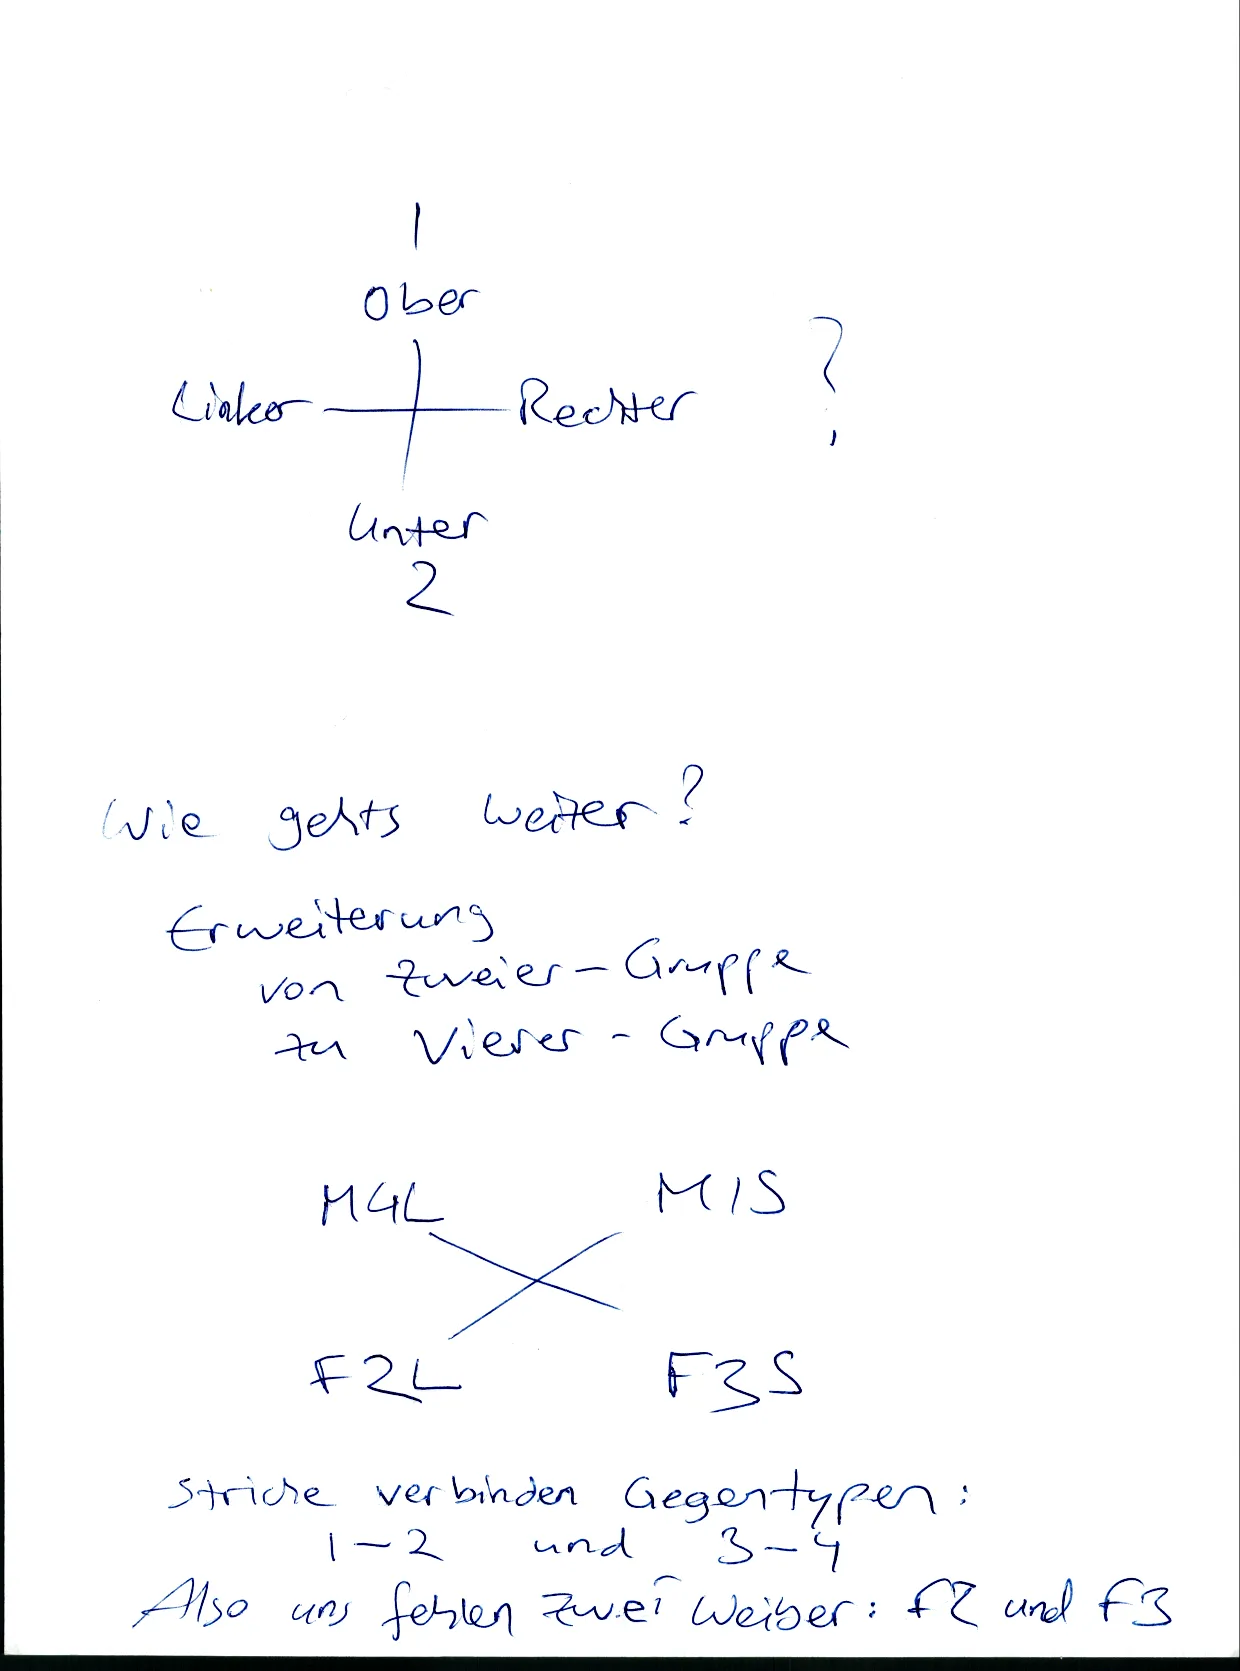 1
Ober
Linker Rechter ?
Unter
2
Wie gehts weiter?
Erweiterung
von Zweier-Gruppe
zu Vierer-Gruppe
M4L M1S
F2L F3S
Striche verbinden Gegentypen:
1-2 und 3-4
Also uns fehlen zwei Weiber: F2 und F3